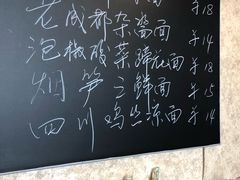 老成都杂酱面 ¥18
泡椒酸菜蹄花面 ¥14
烟笋三鲜面 ¥18
¥15
四川鸡丝凉面 ¥14